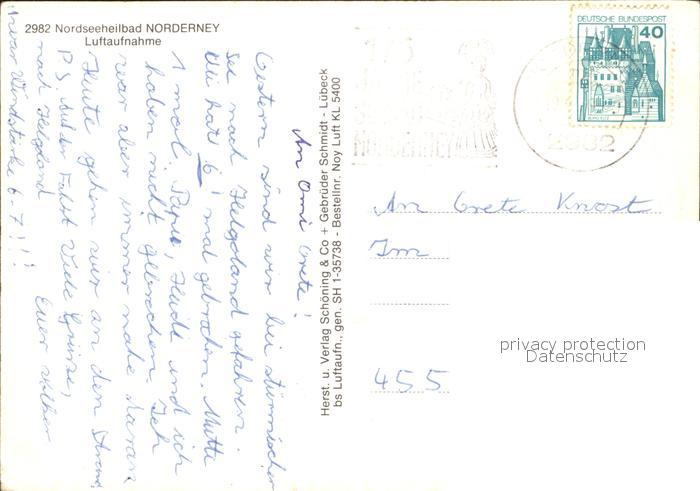 2982 Nordseeheilbad NORDERNEY
Luftaufnahme
DEUTSCHE BUNDESPOST
40
BURG ELTZ
NORDERNEY
2982
An Omi Grete!
Gestern sind wir bei stürmischer
See nach Helgoland gefahren.
Uli hat 6 mal gebrochen. Mutti
1 mal. Papi, Heidi und ich
haben nicht gebrochen. Ich
war aber immer nahe daran
Heute gehen wir an den Strand
P.S. Auf der Fahrt Viele Grüsse,
nach Helgoland Euer
war Windstärke 6-7!!!
Herst. u. Verlag Schöning & Co + Gebrüder Schmidt - Lübeck
bs Luftaufn., gen. SH 1-35738 - Bestellnr. Noy Luft KL 5400
An Grete Knost
Im
455
privacy protection
Datenschutz